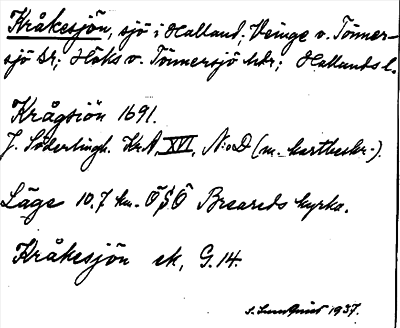 Kråkesjön, sjö i Halland; Veinge o. Tönner-
sjö sr; Höks o. Tönnersjö hdr; Hallands l.
Krågsiön 1691.
J. Söderlingh. Kr.A. XVI, N:o D (m. kartbeskr.).
Läge 10,7 km. ÖSÖ Breareds kyrka.
Kråkesjön ek, G. 14.
1937.